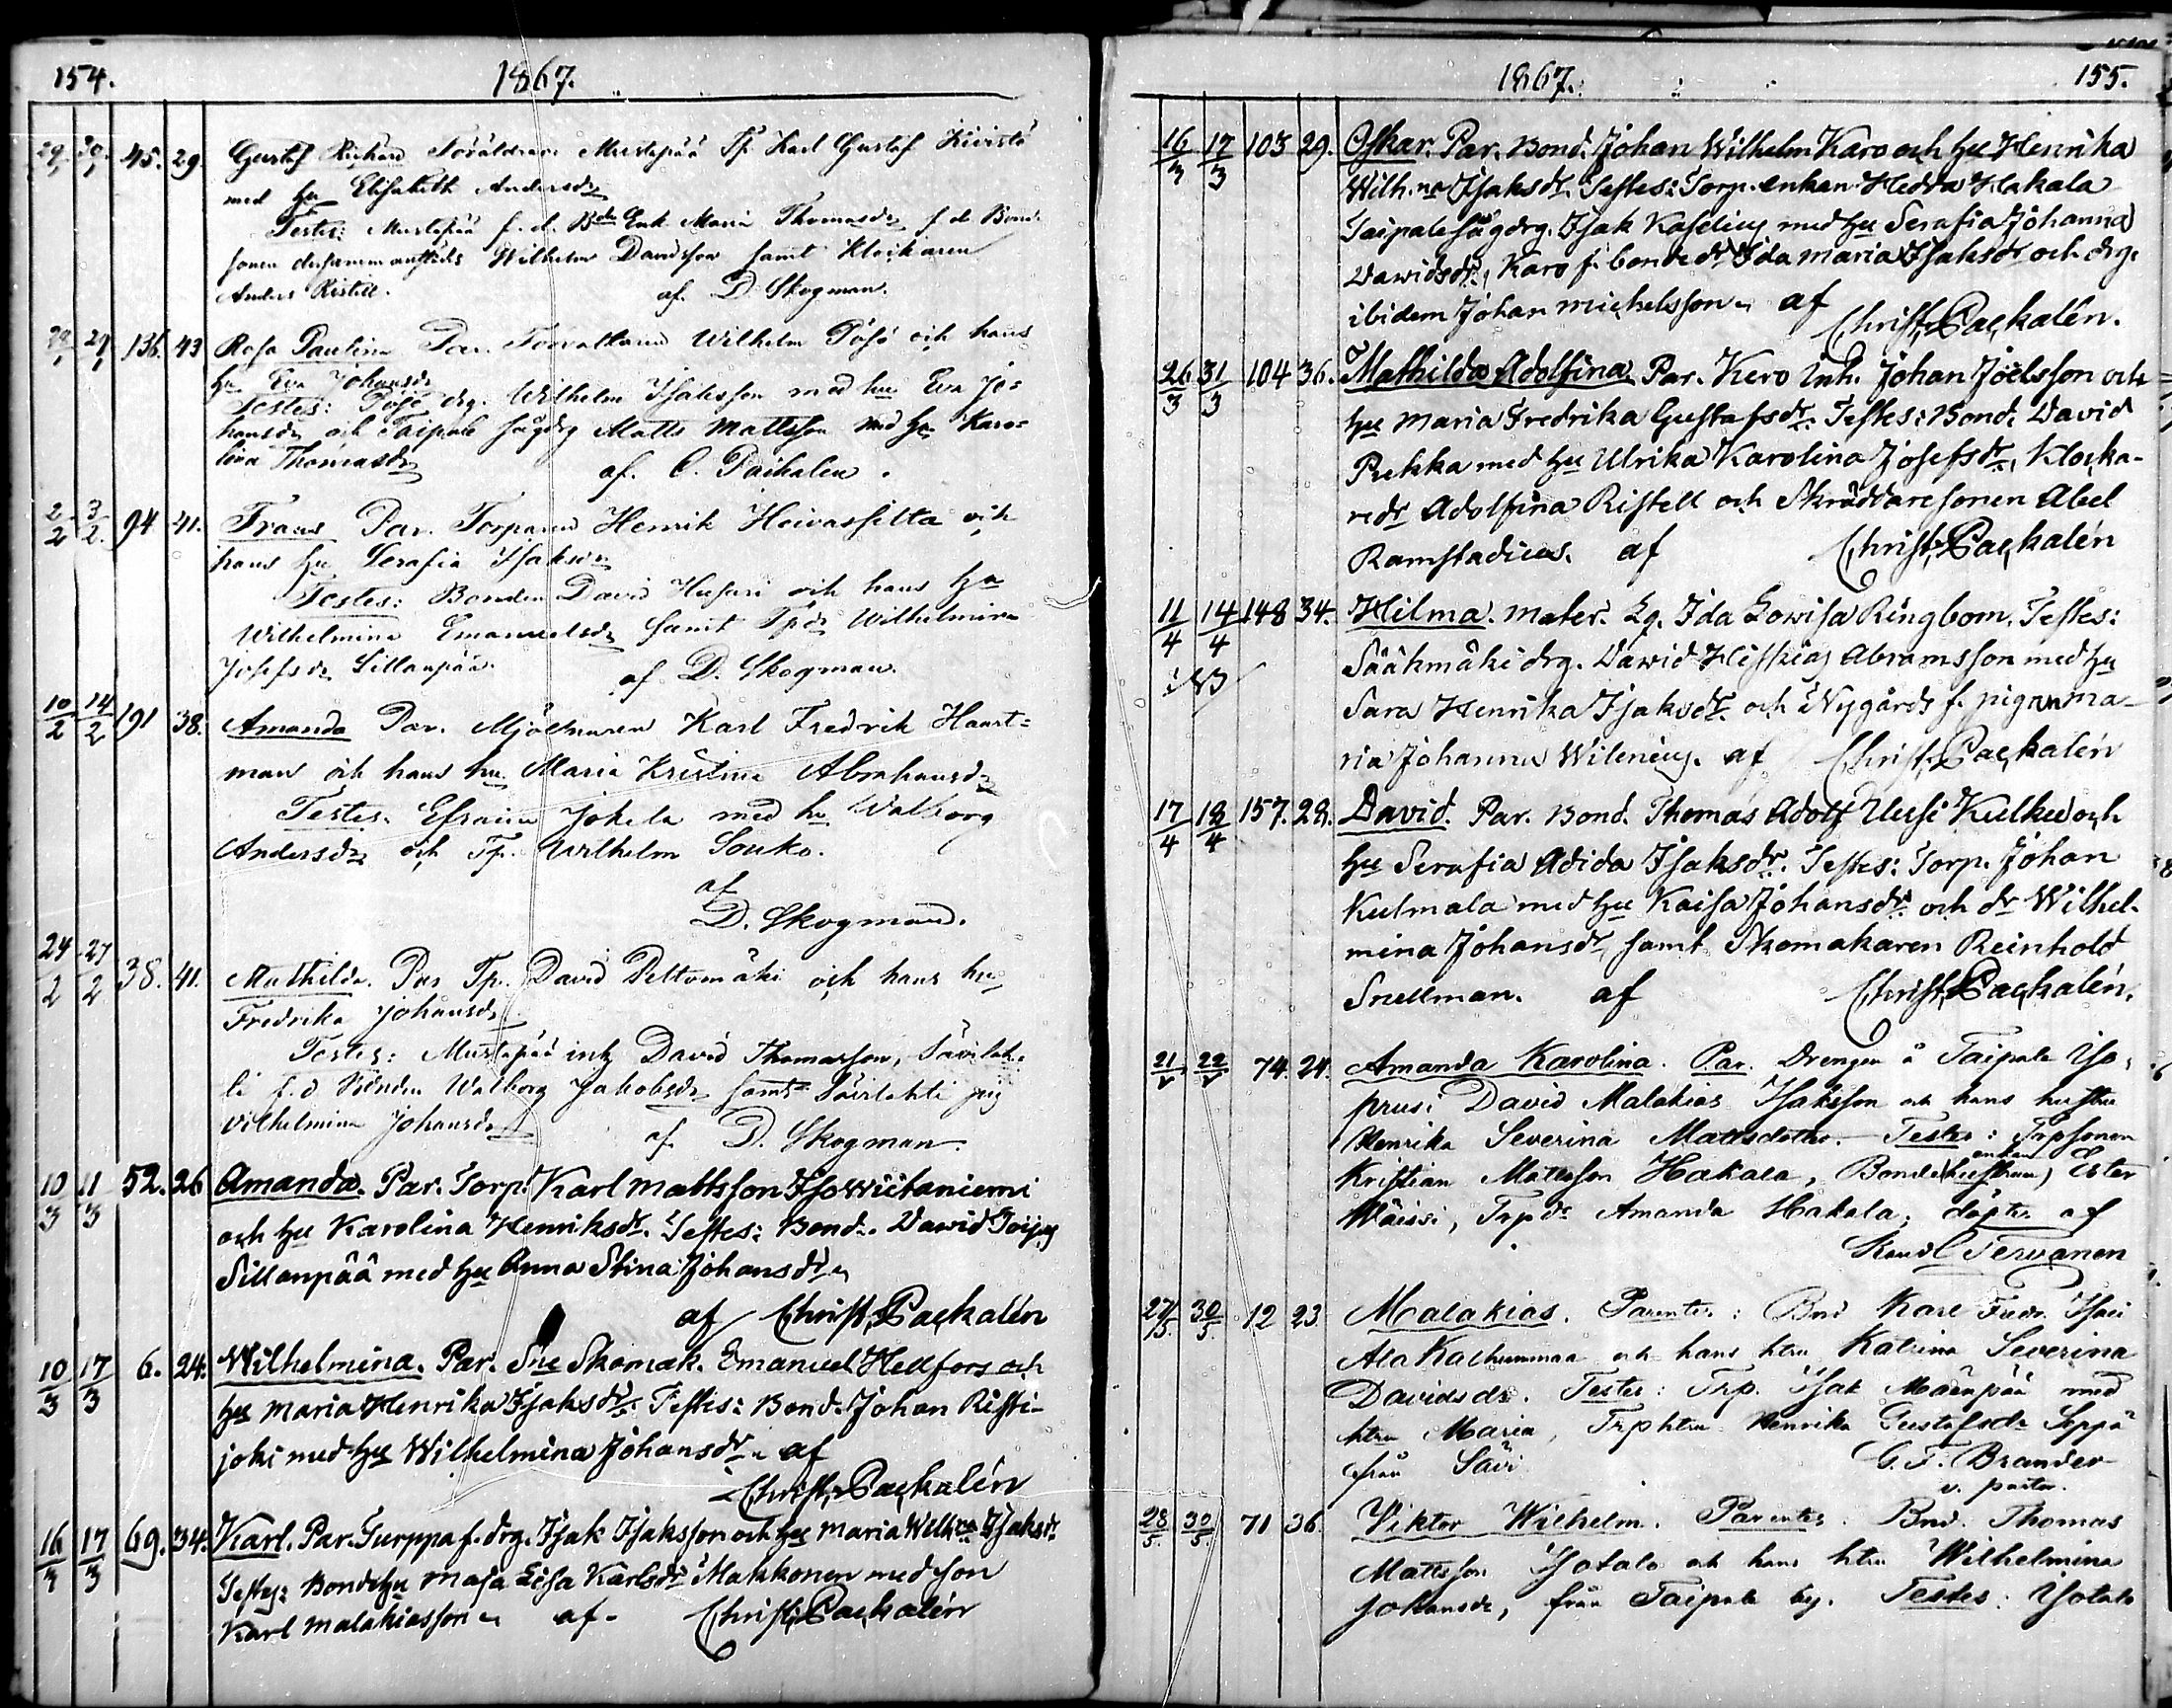 154. 1867.
29/1 30/1 45. 29. Gustaf Richard Föräldrar: Mustapää Tp. Karl Gustaf Kivistö
med hu Elisabeth Andersdr
Testes: Mustapää f. d. Bde Enk. Maria Thomasdr f. d. Bond.
sonen dersammanstäds Wilhelm Davidsson samt Klockaren
Anders Ristell. af. D. Skogman.
136. 43 Rosa Paulina Par. Wilhelm Pösö och hans
hu Eva Johansdr
Testes: Pösö drg. Wilhelm Isaksson med hu Eva Jo=
hansdr och Taipale sågdrg Matts Mattsson med hu Karo=
lina Thomasdr af. C. Packalen.
2/2 3/2 94 41. Frans Par. Torparen Henrik Heivassilta och
hans hu Serafia Isaksdr
Testes: Bonden David Husari och hans hu
Wilhelmina Emanuelsdr samt Tpdr Wilhelmina
Josefsdr Sillanpää. af D. Skogman.
10/2 14/2 191 38. Amanda Par. Mjölnaren Karl Fredrik Haart=
man och hans hu Maria Kristina Abrahamsdr
Testes. Efraim Jokela med hu Walborg
Andersdr och Tp. Wilhelm Souko.
af
D. Skogman.
24/2 27/2 38. 41. Mathilda. Par Tp. David Peltomäki och hans hu
Fredrika Johansdr.
Testes: Mustapää inh David Thomasson, Sävilah=
ti f. d Bonden Walborg Jakobsdr samt Sävilahti pig
Vilhelmina Johansdr af D. Skogman.
10/3 11/3 52. 26 Amanda. Par. Torp. Karl Mattsson Isowiitaniemi
och hu Karolina Henriksdr. Testes: Bond. David
Sillanpää med hu Anna Stina Johansdr
af Christ. Packalén
10/3 17/3 6. 24. Wilhelmina. Par. Sne Skomak. Emanuel Hellfors och
hu Maria Henrika Isaksdr. Testes: Bond. Johan Risti-
joki med hu Wilhelmina Johansdr af
Christ. Packalén
16/3 17/3 69. 34. Karl. Par. Turppa f. drg. Isak Isaksson och hu Maria Wilh.na Isaksdr
Testes: Bondehu Maja Lisa Karlsdr Makkonen med son
Karl Malakiasson af Christ. Packalén
1867. 155.
16/3 17/3 103 29. Oskar. Par. Bond. Johan Wilhelm Karo och hu Henrika
Wilh.na Isaksdr. Testes: Torp.enkan Hedda Hakala
Taipale sågdrg. Isak Kaselius med hu Serafia Johanna
Davidsdr, Karo f. bondedr Ida Maria Isaksdr och drg.
ibidem Johan Michelsson af
Christ. Packalén.
26/3 31/3 104 36. Mathilda Adolfina Par. Kero inh. Johan Joelsson och
hu Maria Fredrika Gustafsdr. Testes: Bond. David
Pekka med hu Ulrika Karolina Josefsdr, Klocka-
redr Adolfina Ristell och Skräddaresonen Abel
Ramstadius. af Christ. Packalén
11/4 14/4 148 34. Hilma. Mater. Lg. Ida Lowisa Ringbom. Testes:
Sääksmäki drg. David Hiskias Abramsson med hu
Sara Henrika Isaksdr. och Nygårds f. pigan Ma-
ria Johanna Wilenius. af Christ. Packalén
17/4 18/4 157. 28. David. Par. Bond. Thomas Adolf Uusi Kulku och
hu Serafia Adida Isaksdr. Testes: Torp. Johan
Kulmala med hu Kaisa Johansdr och dr Wilhel-
mina Johansdr, samt Skomakaren Reinhold
Snellman. af Christ. Packalén.
21/V 22/V 74. 24. Amanda Karolina. Par. Drengen å Taipale Iso-
prusi David Malakias Isaksson och hans hustru
Henrika Severina Mattsdotter. Testes: Trpsonen
enkan
Kristian Mattsson Hakala, Bonde(hustrun) Ester
Wäissi, Trpdr Amanda Hakala, döpte af
Kand. C Tervanen
27/5. 30/5. 12 23 Malakias. Parentes: Bnd Karl Fredr. Isaci
Ala Kachunmaa och hans htru Katrina Severina
Davidsdr. Testes: Trp. Isak Mäenpää med
htru Maria, Trphtru Henrika Gustafsdr Seppä
från Sävi G. F. Brander
v. pastor.
28/5. 30/5. 71 36. Viktor Wilhelm. Parentes. Bnd. Thomas
Mattsson Isotalo och hans htru Wilhelmina
Johansdr, från Taipale by. Testes: Isotalo